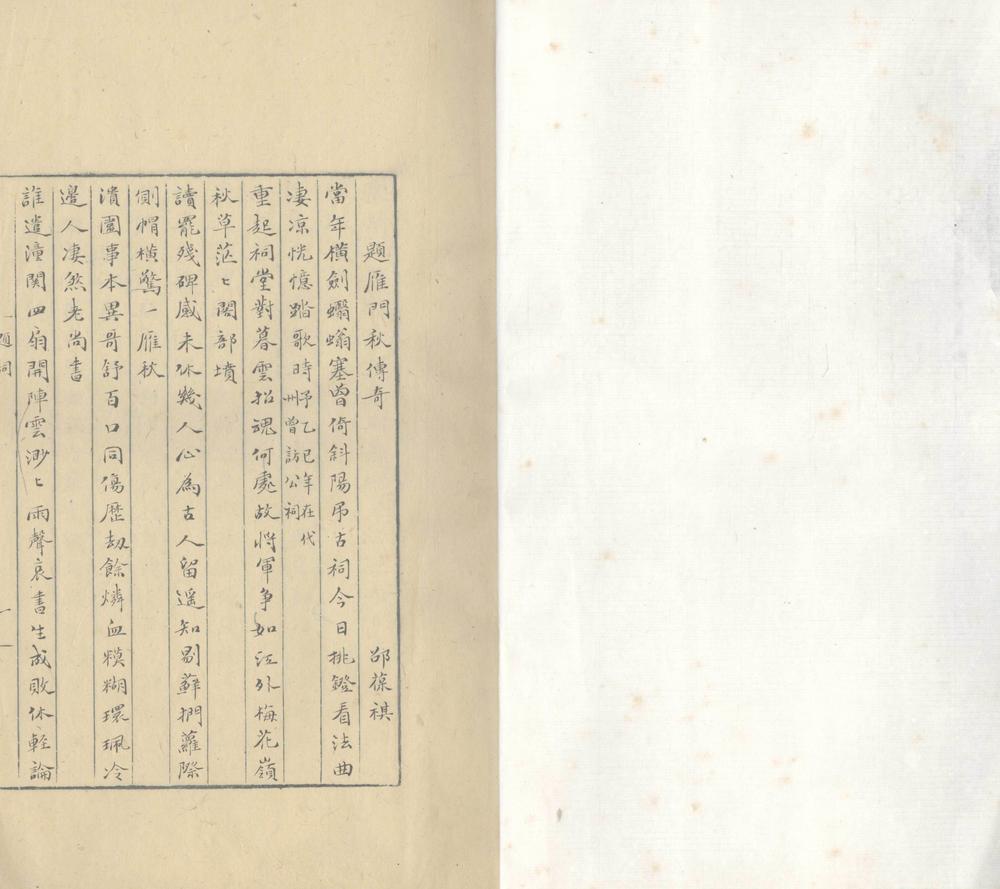 題雁門秋傳奇
邵葆祺
當年橫劍蠮螉塞曾倚斜陽吊古祠今日挑鐙看法曲
凄凉恍憶踏歌時予乙巳年在代州曾訪公祠
重起祠堂對暮雲招魂何處故將軍爭如江外梅花嶺
秋草茫〻閣部墳
讀罷殘碑感未休幾人心為古人留遥知剔蘚捫蘿際
側帽橫驚一雁秋
潰圍事本異哥舒百口同傷歷劫餘燐血糢糊環珮冷
邊人凄煞老尚書
誰遣潼関四扇開陣雲渺〻雨聲哀書生成敗休輕論
題詞
一